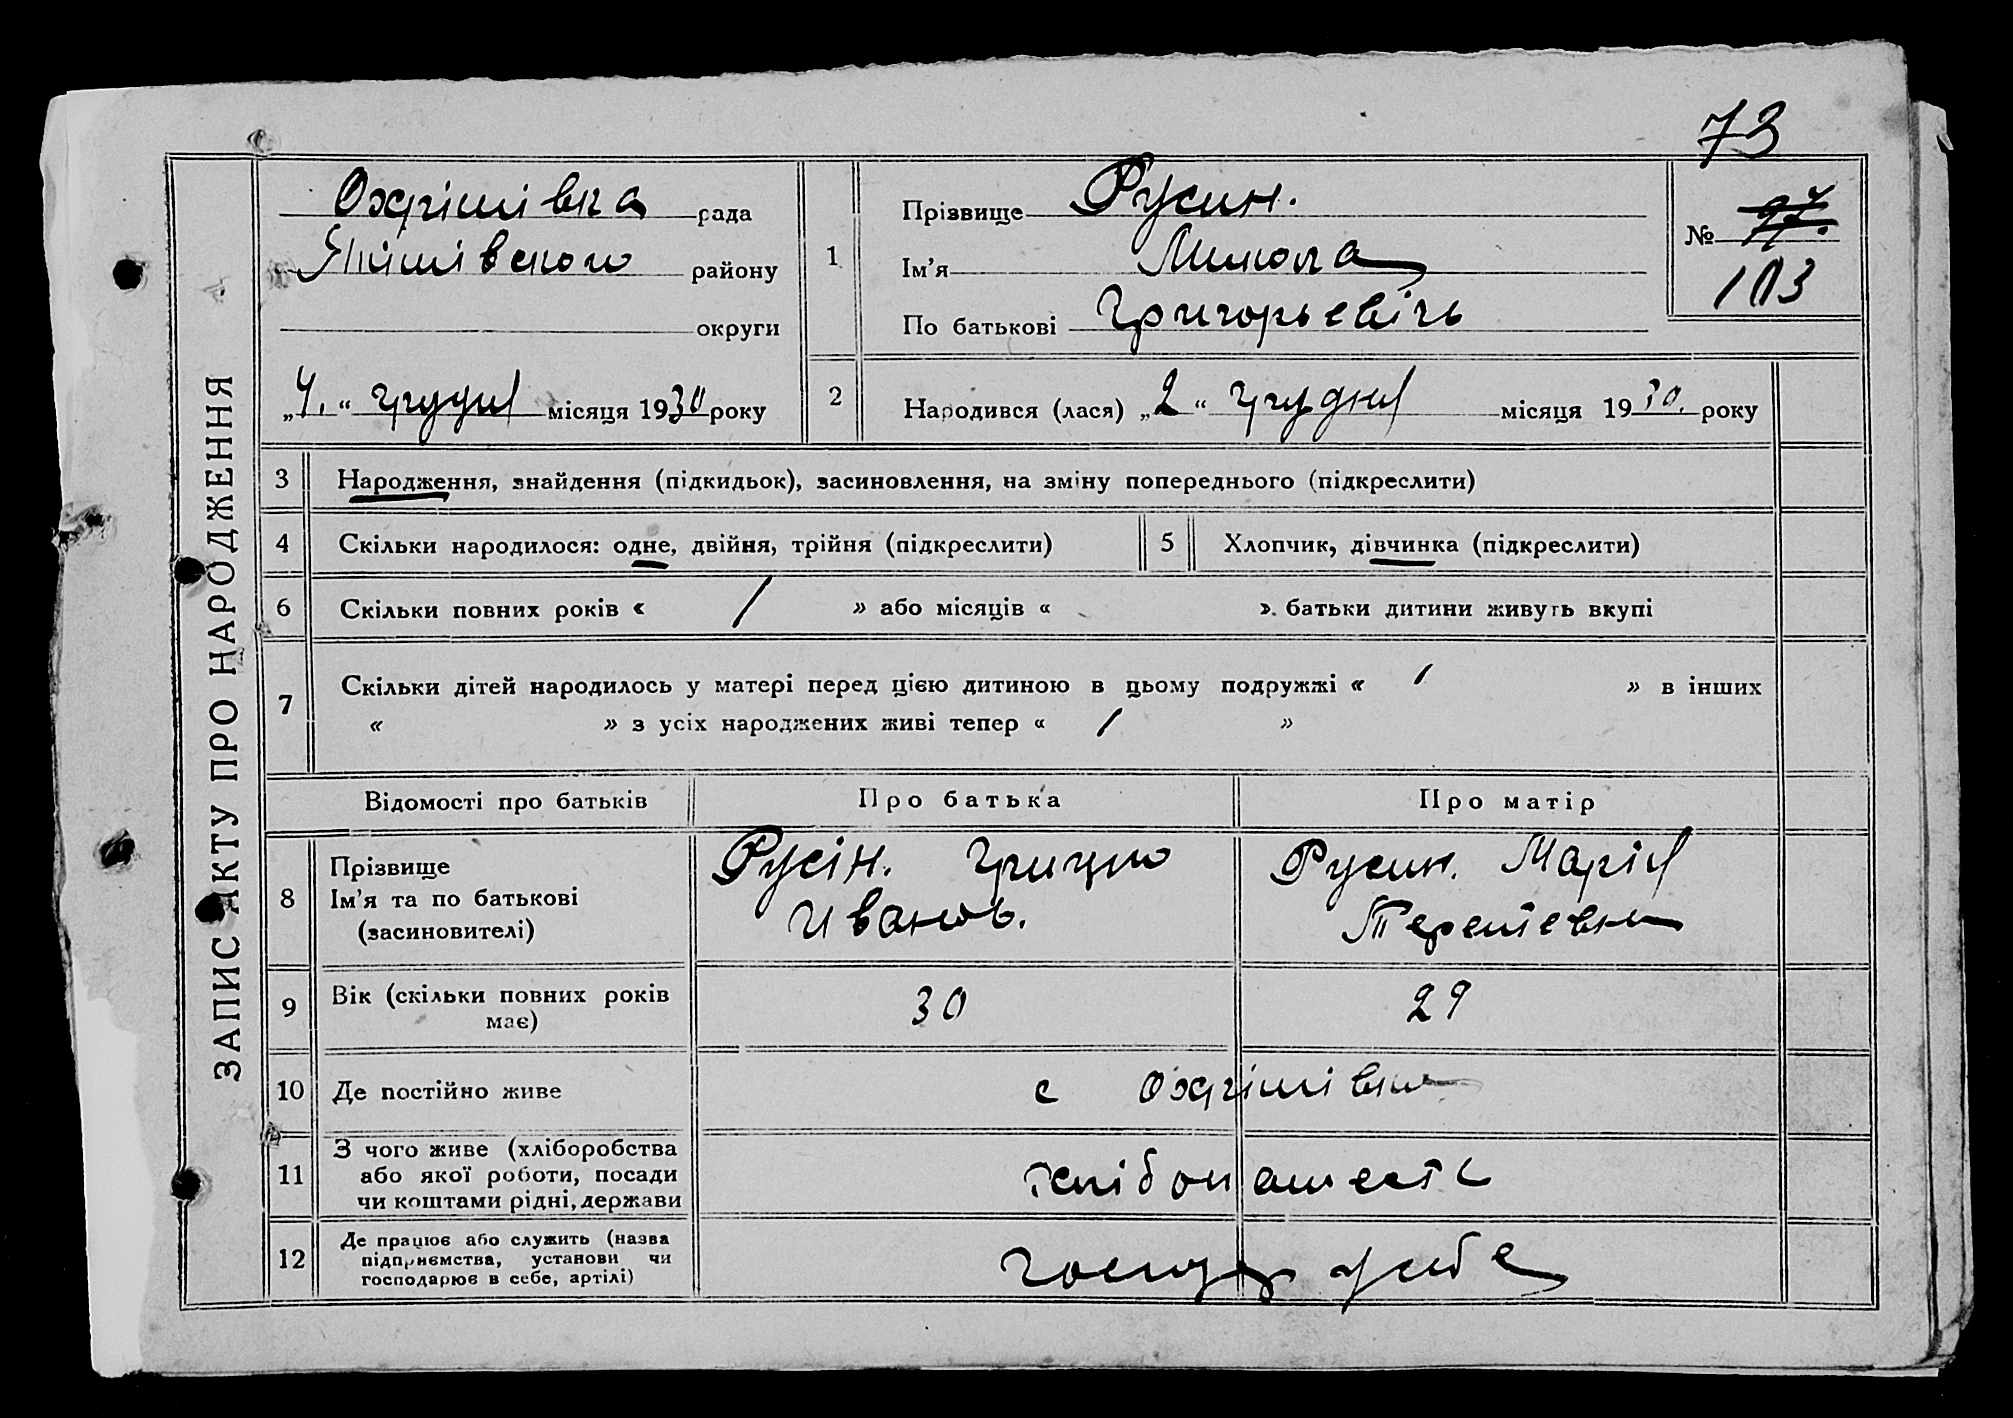 73
ЗАПИС АКТУ ПРО НАРОДЖЕННЯ
Охрімівка рада
Якімівского району
округи
„4.“ грудня місяця 1930 року
1
Прізвище Русин.
Ім'я Микола
По батькові Григорьевічь
№ 97.
103
2 Народився (лася) „2“ грудня місяця 1930. року
3 Народження, знайдення (підкидьок), засиновлення, на зміну попереднього (підкреслити)
4 Скільки народилося: одне, двійня, трійня (підкреслити) 5 Хлопчик, дівчинка (підкреслити)
6 Скільки повних років « / » або місяців « » батьки дитини живуть вкупі
7 Скільки дітей народилось у матері перед цією дитиною в цьому подружжі « / » в інших
« » з усіх народжених живі тепер « / »
Відомості про батьків Про батька Про матір
8 Прізвище
Ім'я та по батькові
(засиновителі)
Русін. Грицко
Иванов.
Русин. Марія
Терентевна
9 Вік (скільки повних років
має)
30 29
10 Де постійно живе с Охрімівка
11 З чого живе (хліборобства
або якої роботи, посади
чи коштами рідні, держави
12 Де працює або служить (назва
підприємства, установи чи
господарює в себе, артілі)
господ у себе